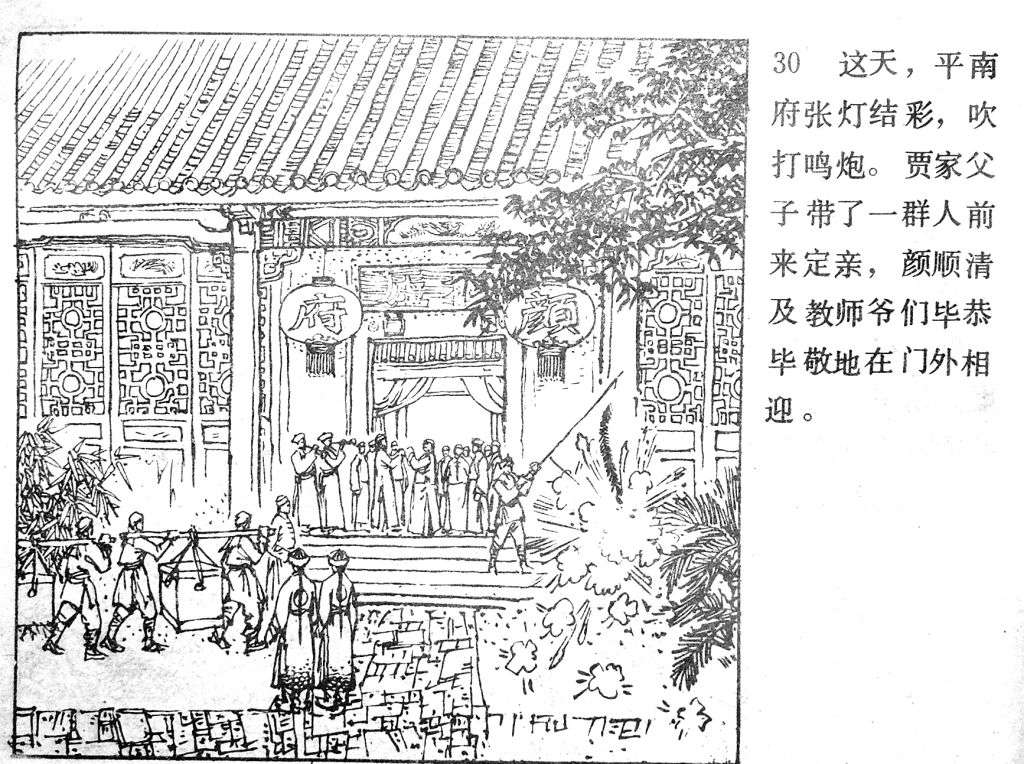 30 这天，平南
府张灯结彩，吹
打鸣炮。贾家父
子带了一群人前
来定亲，颜顺清
及教师爷们毕恭
毕敬地在门外相
迎。
府
颜